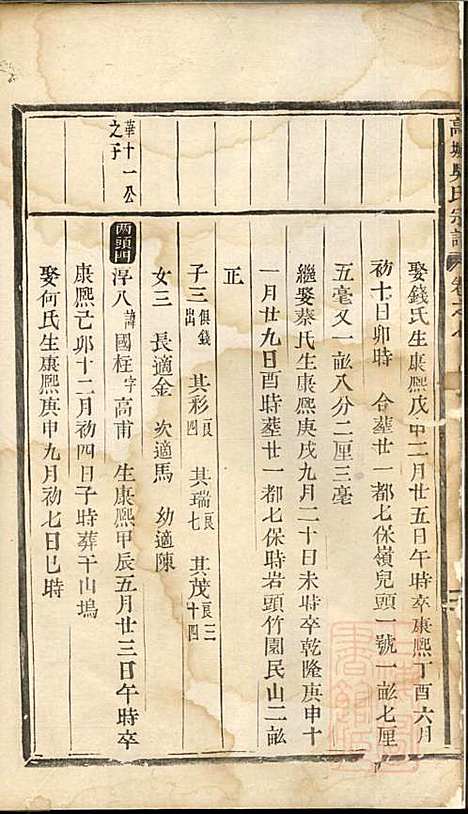 高塘吳氏宗譜 卷之
娶錢氏生康熙戊申二月廿五日午時卒康熙丁酉六月
初十日卯時 合葬廿一都七保嶺兒頭一號一畝七厘
五毫又一畝八分二厘三毫
繼娶蔡氏生康熙庚戌九月二十日未時卒乾隆庚申十
一月廿九日酉時葬廿一都七保時岩頭竹園民山二畝
正
子三俱錢出 其彩良四 其瑞良七 其茂良二十四
女三 長適金 次適馬 幼適陳
華十一公之子
兩頭門
浮八諱國柱字高甫 生康熙甲辰五月廿三日午時卒
康熙己卯十二月初四日子時葬干山塢
娶何氏生康熙庚申九月初七日巳時